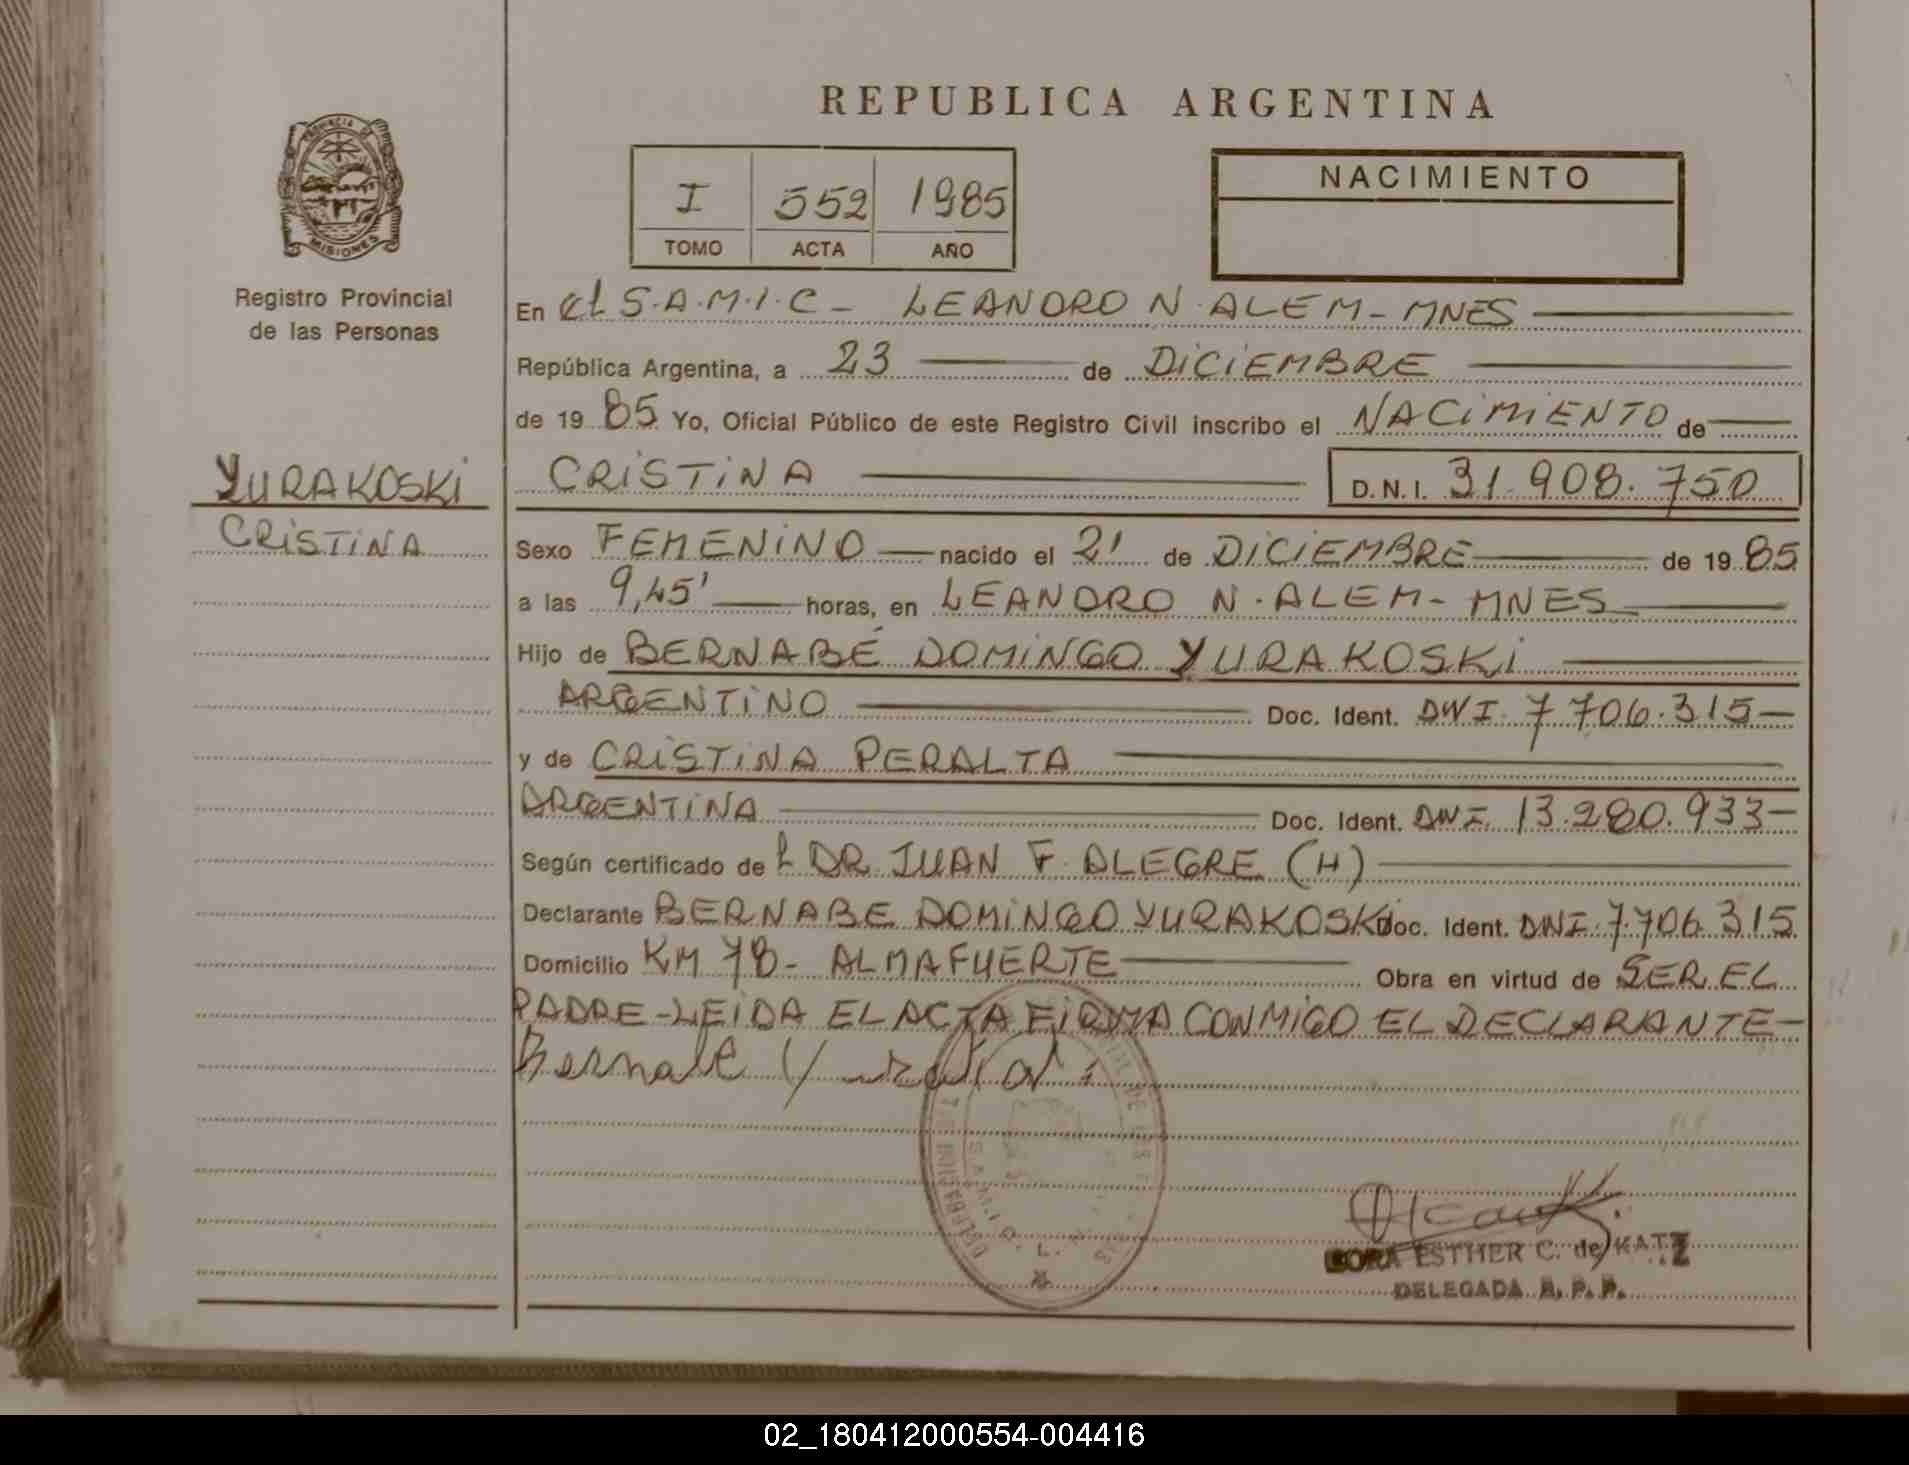 REPUBLICA ARGENTINA
PROVINCIA DE
MISIONES
Registro Provincial
de las Personas
I 552 1985
TOMO ACTA AÑO
NACIMIENTO
En el S.A.M.I.C - LEANDRO N. ALEM - MNES
República Argentina, a 23 de DICIEMBRE
de 19 85 Yo, Oficial Público de este Registro Civil inscribo el NACIMIENTO de
YURAKOSKI
CRISTINA
CRISTINA D.N.I. 31.908.750
Sexo FEMENINO nacido el 21 de DICIEMBRE de 19 85
a las 9,45' horas, en LEANDRO N. ALEM - MNES
Hijo de BERNABÉ DOMINGO YURAKOSKI
ARGENTINO Doc. Ident. DNI. 7.706.315-
y de CRISTINA PERALTA
ARGENTINA Doc. Ident. DNI. 13.280.933-
Según certificado de L DR. JUAN F. ALEGRE (H)
Declarante BERNABE DOMINGO YURAKOSKI Doc. Ident. DNI. 7.706.315
Domicilio KM 78 - ALMAFUERTE Obra en virtud de SER EL
PADRE - LEIDA EL ACTA FIRMA CONMIGO EL DECLARANTE -
Bernabe
ESTHER C. de KATZ
DELEGADA R. P. P.
02_180412000554-004416